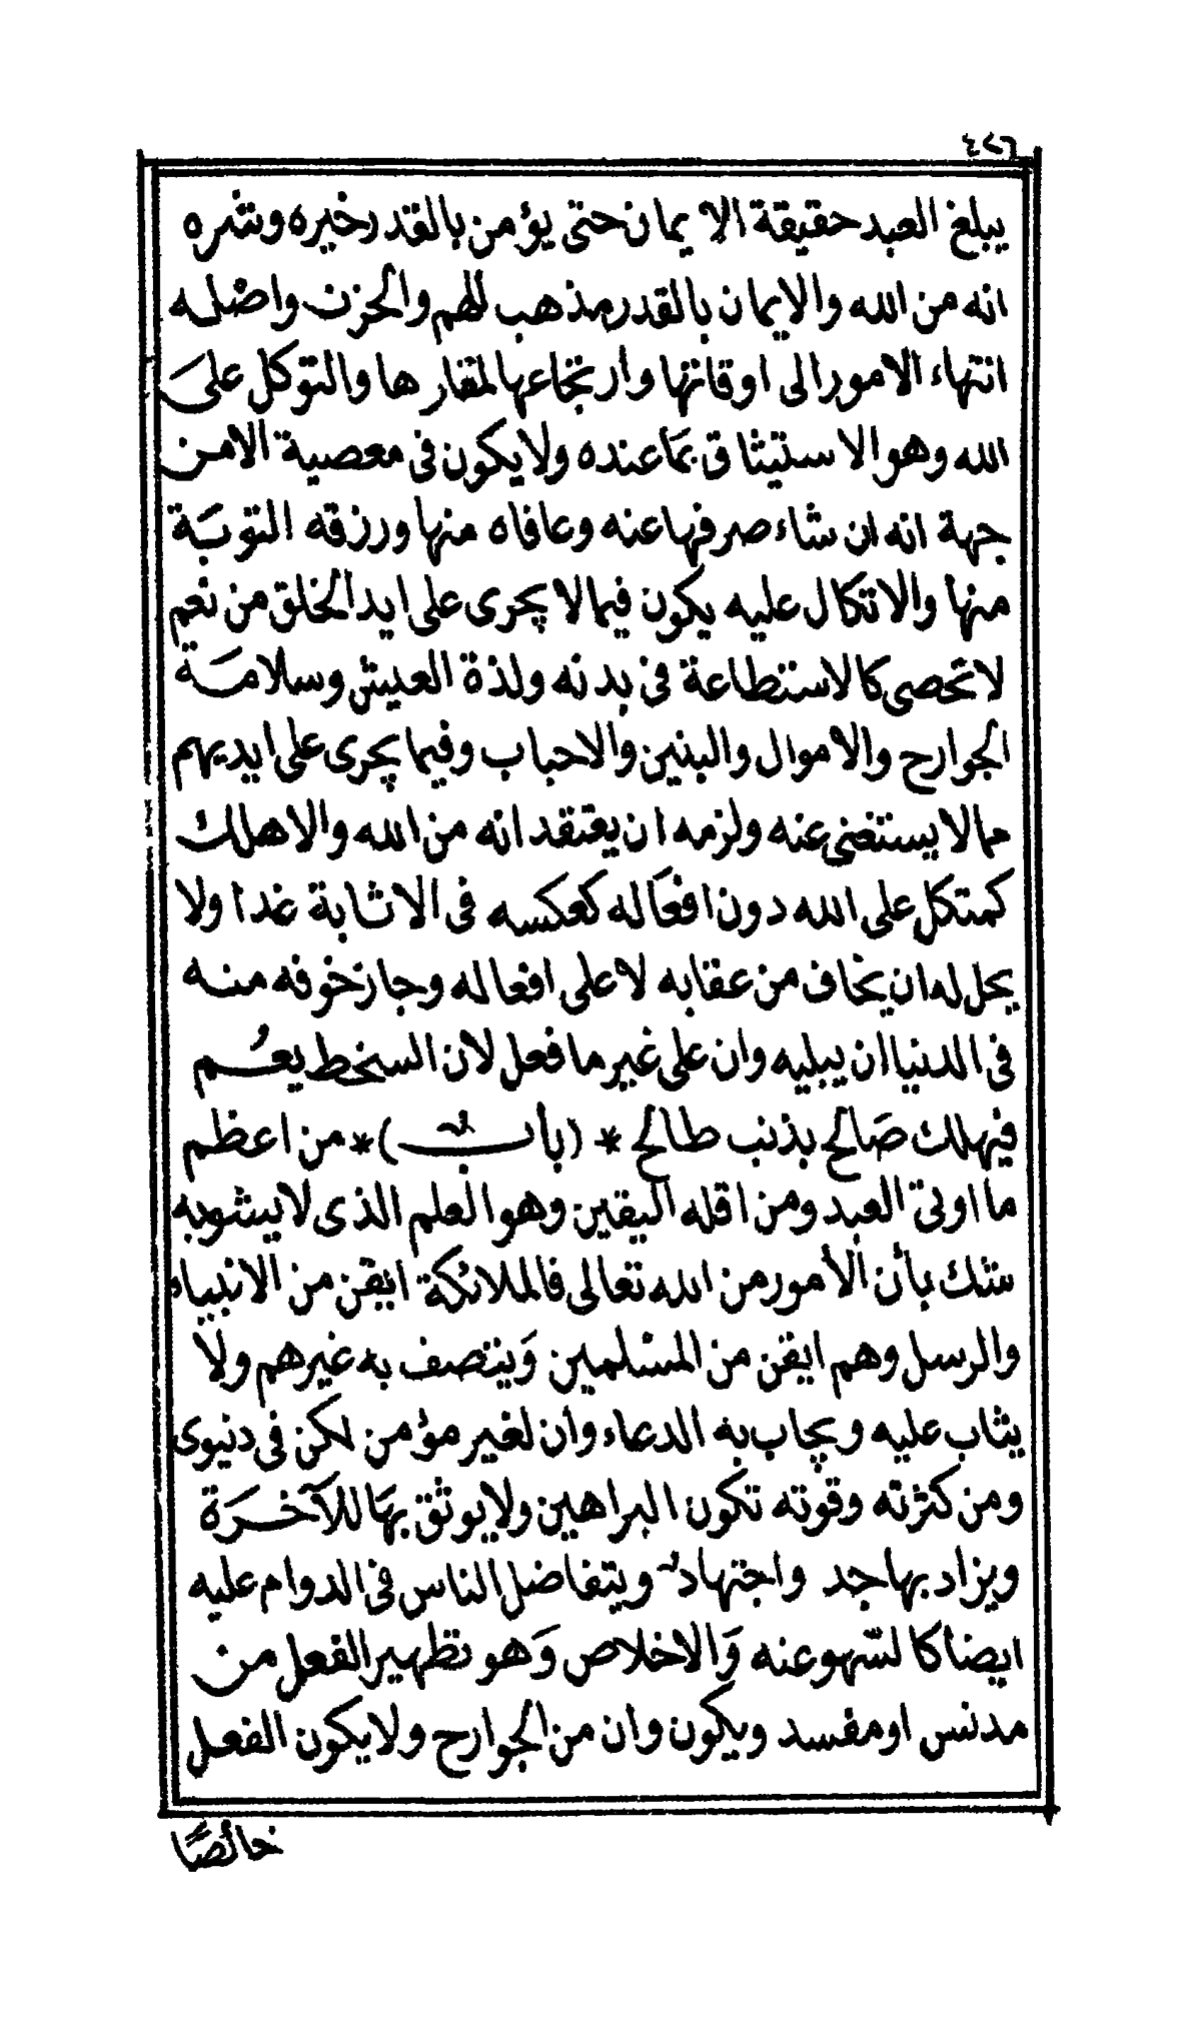 ٤٢٦
يبلغ العبد حقيقة الايمان حتى يؤمن بالقدر خيره وشره
انه من الله والايمان بالقدر مذهب للهم والحزن واصله
انتهاء الامور الى اوقاتها وارتجاعها لمقارها والتوكل على
الله وهو الاستيثاق بما عنده ولا يكون فى معصية الا من
جهة انه ان شاء صرفها عنه وعافاه منها ورزقه التوبة
منها والاتكال عليه يكون فيما لا يجرى على ايد الخلق من نعم
لا تحصى كالاستطاعة فى بدنه ولذة العيش وسلامة
الجوارح والاموال والبنين والاحباب وفيما يجرى على ايديهم
مما لا يستغنى عنه ولزمه ان يعتقد انه من الله والا هلك
كمتكل على الله دون افعاله كعكسه فى الاثابة غدا ولا
يحل له ان يخاف من عقابه لا على افعاله وجاز خوفه منه
فى الدنيا ان يبليه وان على غير ما فعل لان السخط يعم
فيهلك صالح بذنب طالح * (باب) * من اعظم
ما اوتى العبد ومن اقله اليقين وهو العلم الذى لا يشوبه
شك بأن الأمور من الله تعالى فالملائكة ايقن من الانبياء
والرسل وهم ايقن من المسلمين ويتصف به غيرهم ولا
يثاب عليه ويجاب به الدعاء وان لغير مؤمن لكن فى دنيوى
ومن كثرته وقوته تكون البراهين ولا يوثق بها للآخرة
ويزاد بها جد واجتهاد ويتفاضل الناس فى الدوام عليه
ايضا كالسهو عنه والاخلاص وهو تطهير الفعل من
مدنس او مفسد ويكون وان من الجوارح ولا يكون الفعل
خالصا